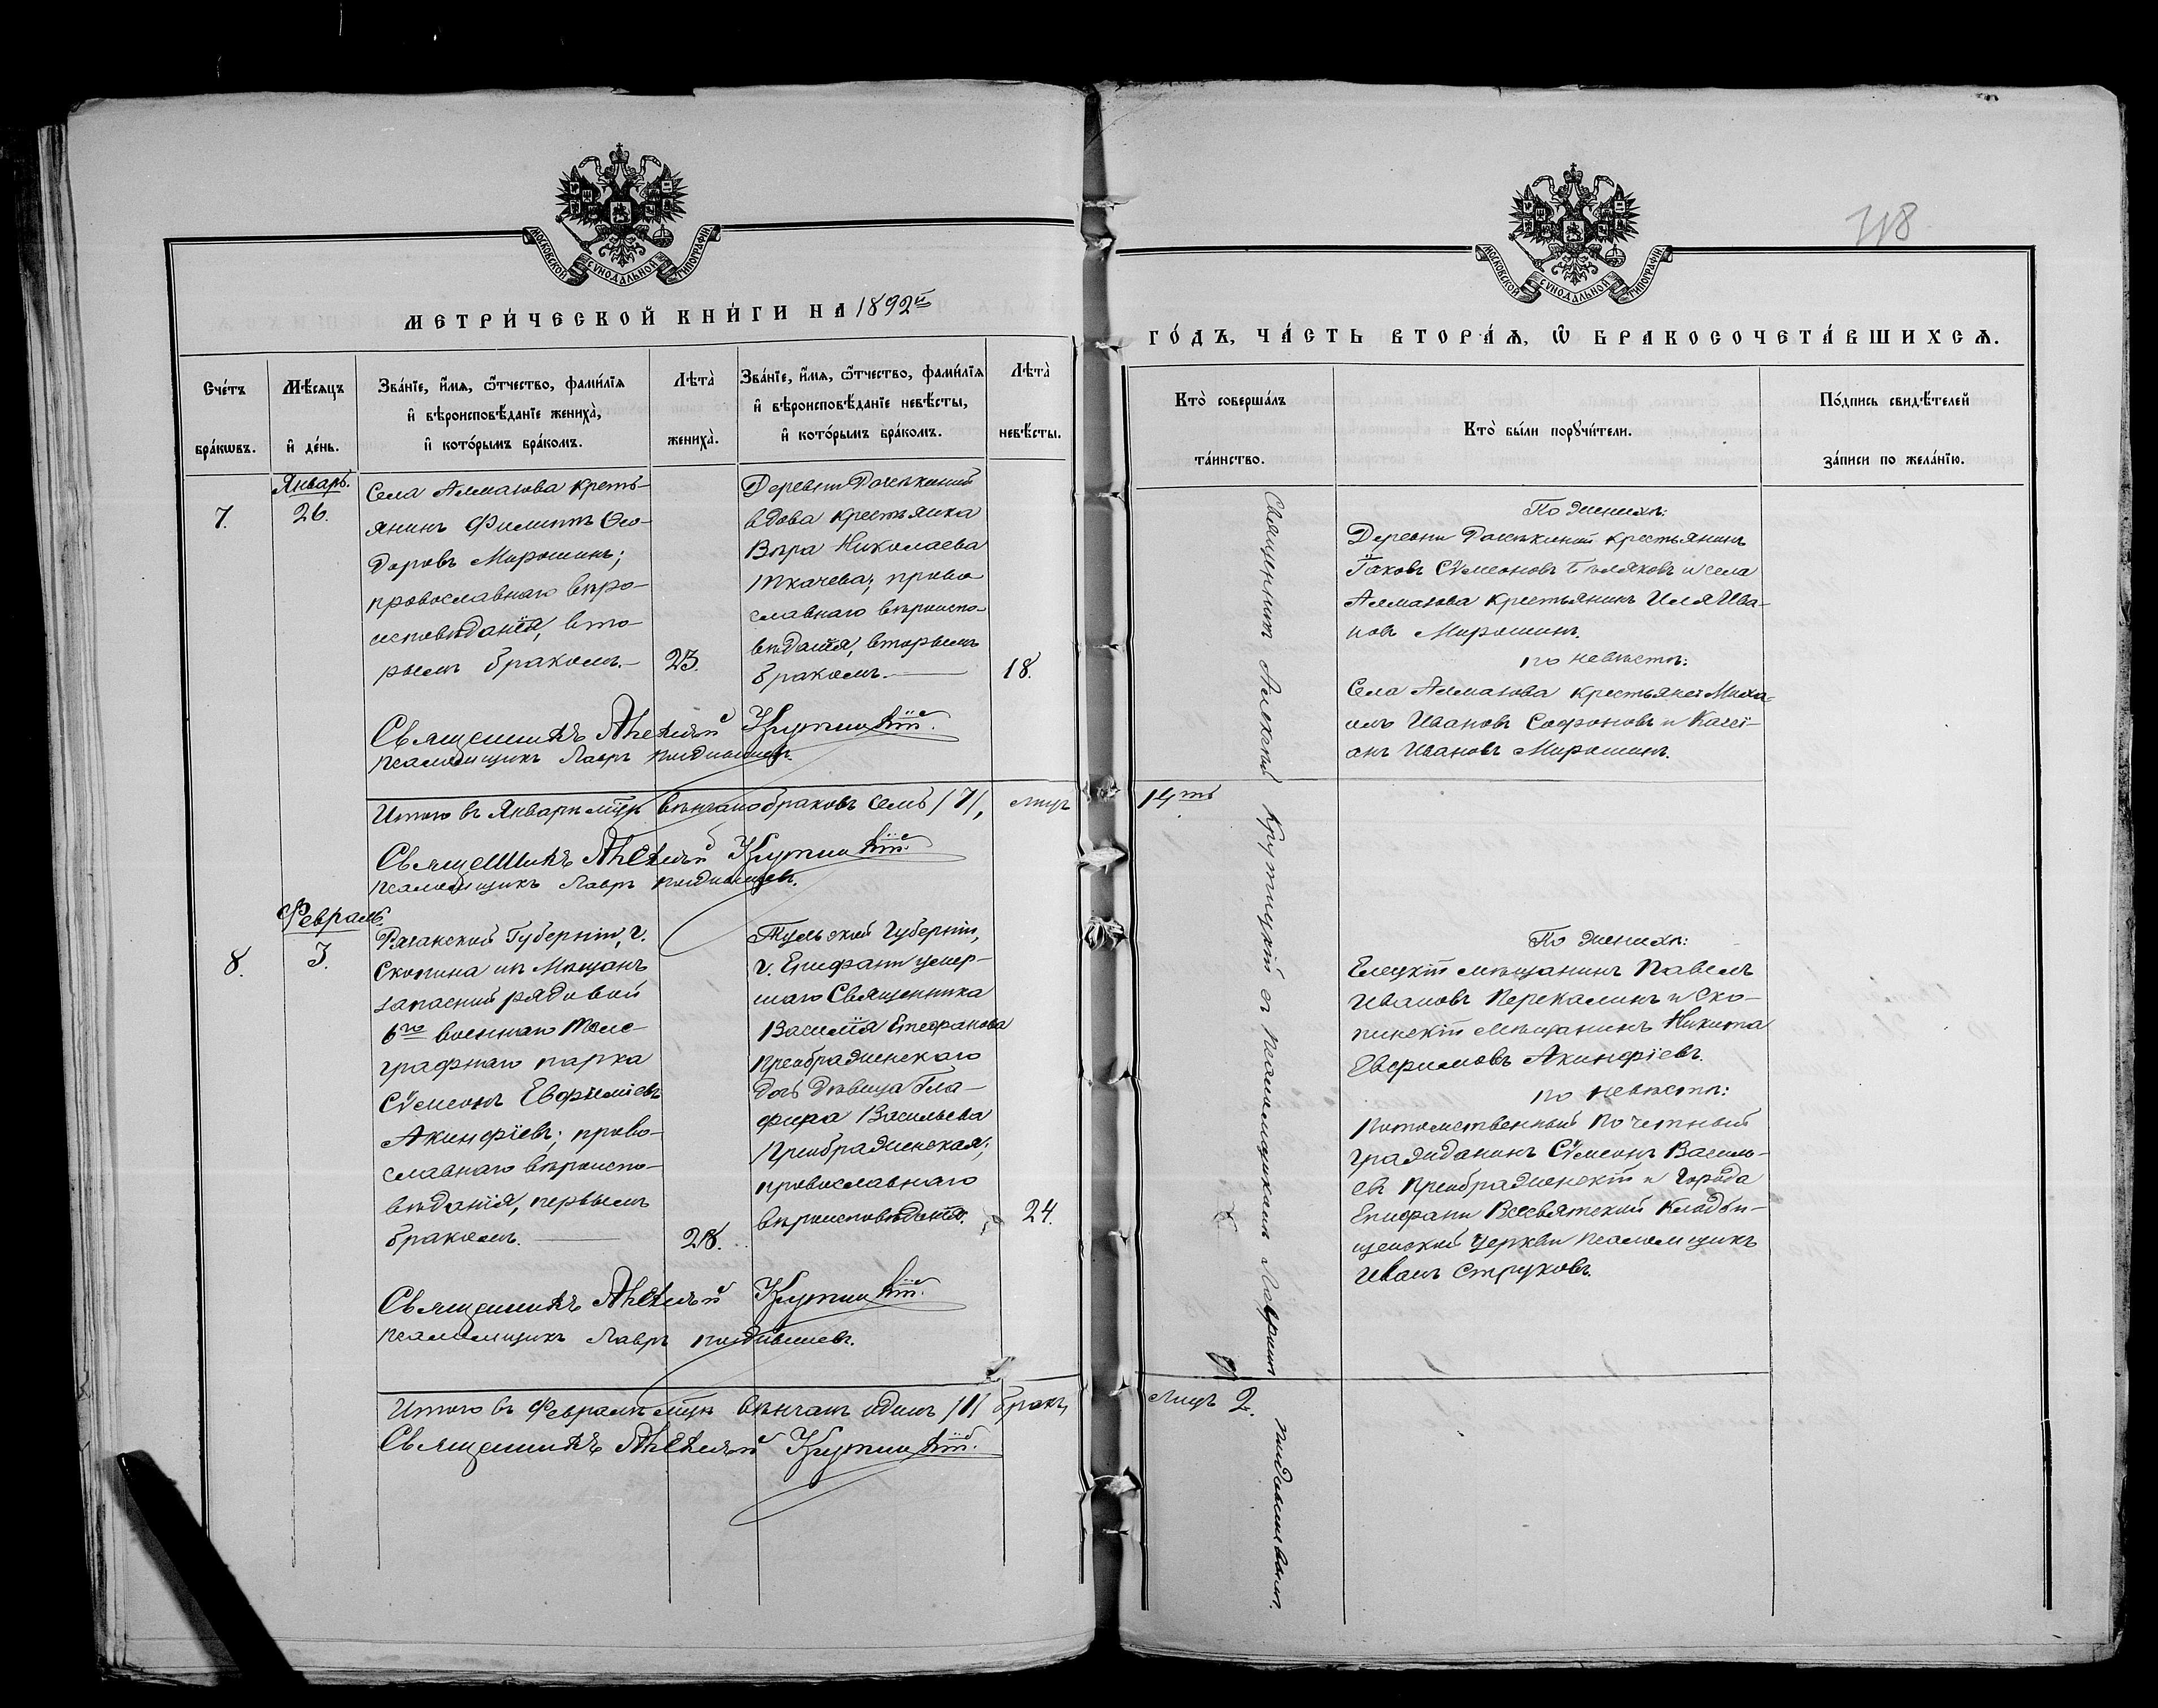 МОСКОВСКОЙ СѴНОДАЛЬНОЙ ТИПОГРАФІИ.
МЕТРИ́ЧЕСКОЙ КНИ́ГИ НА 1892й
Сче́тъ бра́кѡвъ.
Мѣ́сяцъ и҆ де́нь.
Зва́нїе, и҆́мѧ, ѻ҆́тчество, фами́лїѧ
и҆ вѣроисповѣ́данїе жениха̀,
и҆ кото́рымъ бра́комъ.
Лѣта̀ жениха̀.
Зва́нїе, и҆́мѧ, ѻ҆́тчество, фами́лїѧ
и҆ вѣроисповѣ́данїе невѣ́сты,
и҆ кото́рымъ бра́комъ.
Лѣта̀ невѣ́сты.
7.
Январь.
26.
Села Алмазова кресть-
янинъ Филиппъ Ѳео-
доровъ Мирошинъ;
православнаго вѣро-
исповѣданія, вто-
рымъ бракомъ.—
23.
Деревни
вдова крестьянка
Вѣра Николаева
Ткачева; право-
славнаго вѣроиспо-
вѣданія, вторымъ
бракомъ.
18.
Священникъ Алексѣй Крутицкій.
псаломщикъ Лавръ
Итого въ Январѣ мцѣ вѣнчано браковъ семь /7/, лицъ
Священникъ Алексѣй Крутицкій.
псаломщикъ Лавръ
8.
Февраль.
3.
Рязанской Губерніи, г.
Скопина из Мѣщанъ
запасный рядовой
6го военнаго Теле-
графнаго парка
Сѵмеонъ Евфиміевъ
Акинфіевъ; право-
славнаго вѣроиспо-
вѣданія, первымъ
бракомъ.
28.
Тульской Губерніи,
г. Епифани умер-
шаго Священника
Василія Стефанова
Преображенскаго
дочь дѣвица Гла-
фира Васильева
Преображенская;
православнаго
вѣроисповѣданія.
24.
Священникъ Алексѣй Крутицкій.
псаломщикъ Лавръ
Итого въ Февралѣ мцѣ вѣнчанъ одинъ /1/ бракъ,
Священникъ Алексѣй Крутицкій.
МОСКОВСКОЙ СѴНОДАЛЬНОЙ ТИПОГРАФІИ.
ГО́ДЪ, ЧА́СТЬ ВТОРА́Ѧ, Ѡ҆ БРАКОСОЧЕТА́ВШИХСѦ.
Кто̀ соверша́лъ
та́инство.
Кто̀ бы́ли порꙋчи́тели.
По́дпись свидѣ́телей
за́писи по жела́нїю.
Священникъ Алексѣй Крутицкій съ Псаломщикомъ Лавромъ
По женихѣ:
Деревни крестьянинъ
Іаковъ Сѵмеоновъ Поляковъ и села
Алмазова крестьянинъ Илія Ива-
новъ Мирошинъ.
по невѣстѣ:
Села Алмазова крестьяне: Миха-
илъ Ивановъ Софоновъ и Кассі-
анъ Ивановъ Мирошинъ.
14ть
По женихѣ:
Елецкій мѣщанинъ Павелъ
Ивановъ Перекалинъ и Ско-
пинскій мѣщанинъ Никита
Евфимовъ Акинфіевъ.
по невѣстѣ:
Потомственный Почетный
гражданинъ Сѵмеонъ Василь-
евъ Преображенскій и города
Епифани Всесвятской Кладби-
щенской церкви псаломщикъ
Иванъ Струковъ.
Лицъ 2.